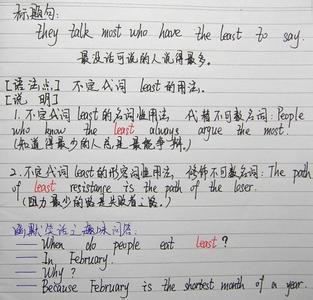 标题句:
they talk most who have the least to say.
最没话可说的人说得最多。
[语法点] 不定代词 least的用法。
[说 明]
1. 不定代词least的名词性用法, 代替不可数名词: People
who know the least always argue the most.
(知道得最少的人总是最能争辩。)
2. 不定代词least的形容词性用法, 修饰不可数名词: The path
of least resistance is the path of the loser.
(阻力最少的路是失败者之路。)
幽默笑话之趣味问答:
— When do people eat least?
— In February.
— Why?
— Because February is the shortest month of a year.